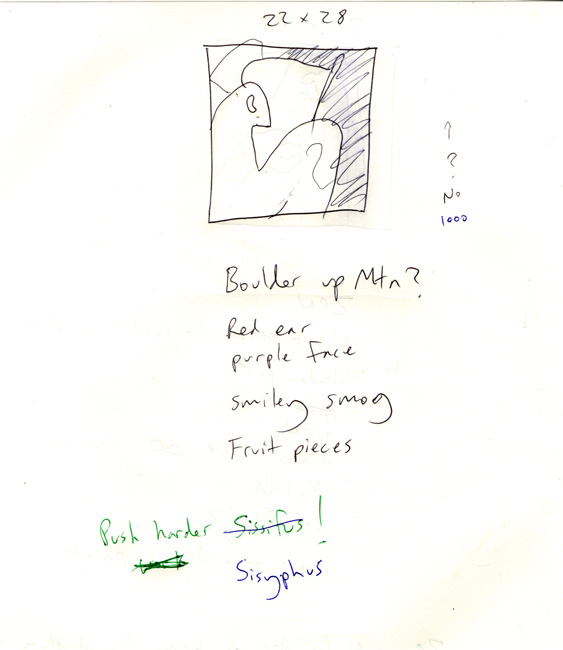 22 x 28
↑
?
No
1000
Boulder up Mtn?
Red ear
purple Face
smiley smog
Fruit pieces
Push harder Sissifus!
Sisyphus